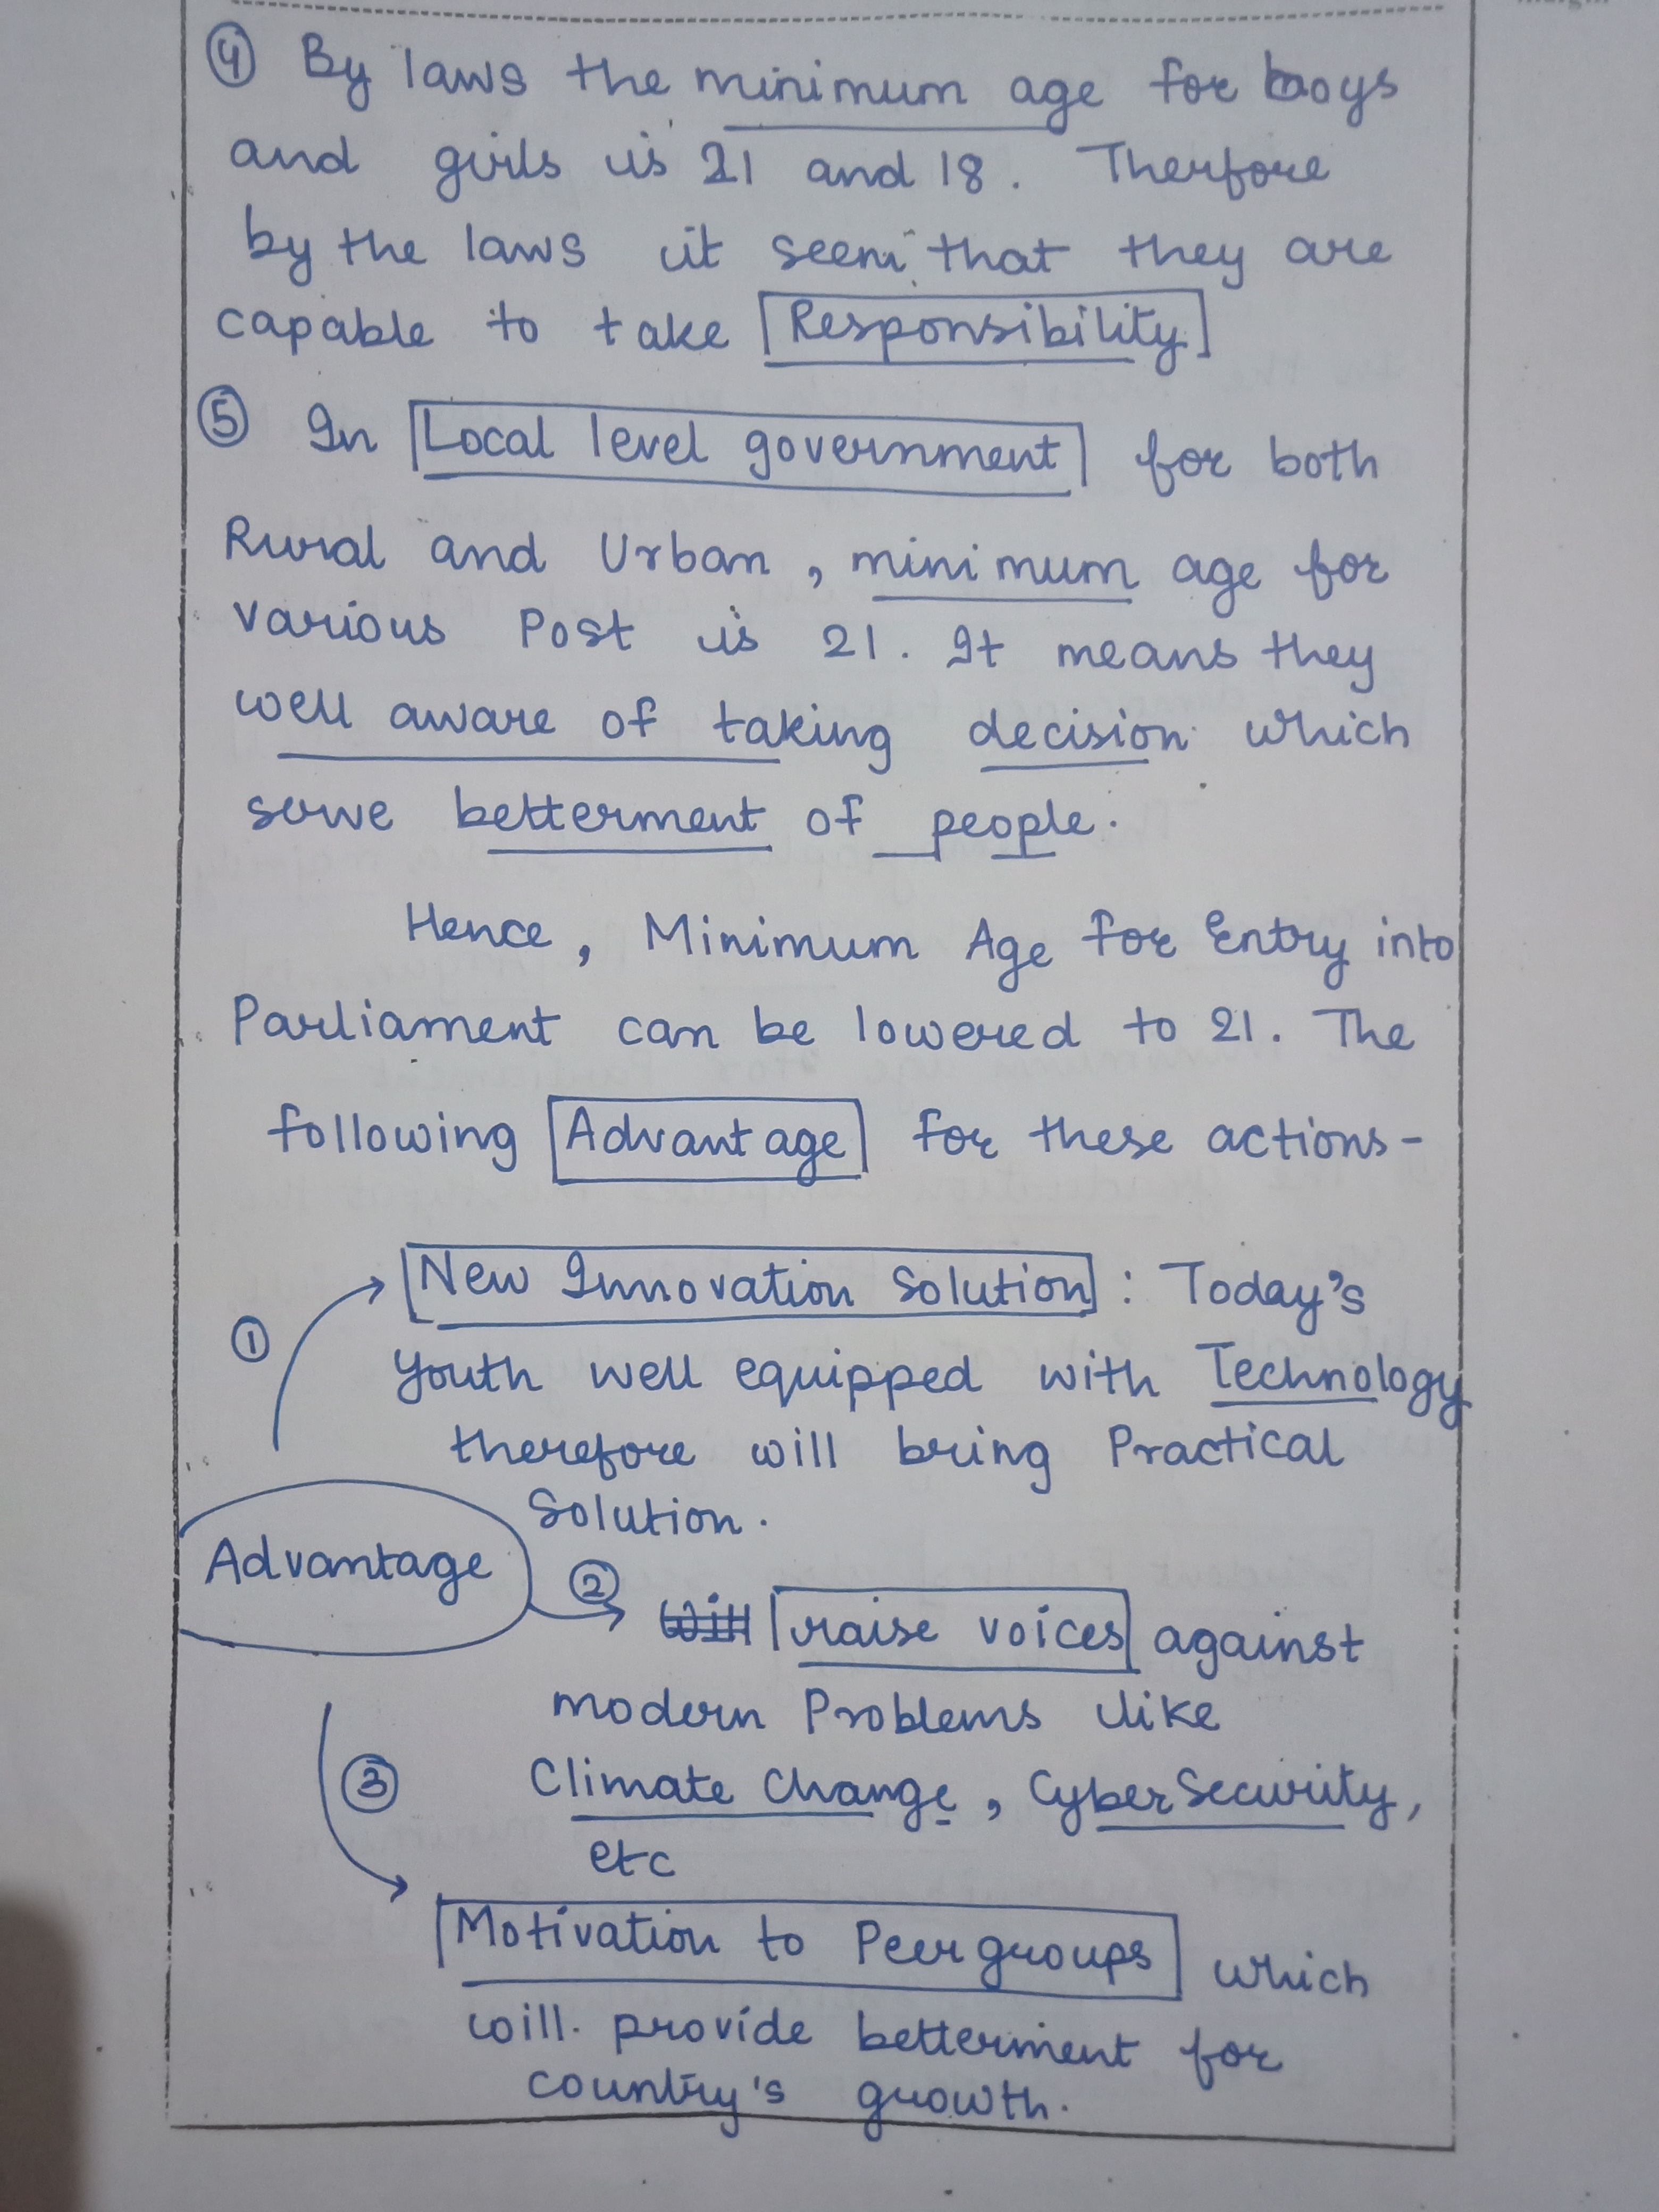 ④ By laws the minimum age for boys
and girls is 21 and 18. Therfore
by the laws it seem that they are
capable to take Responsibility
⑤ In Local level government for both
Rural and Urban, minimum age for
various Post is 21. It means they
well aware of taking decision which
serve betterment of people.
Hence, Minimum Age for Entry into
Parliament can be lowered to 21. The
following Advantage for these actions-
① New Innovation Solution: Today's
Youth well equipped with Technology
therefore will bring Practical
Solution.
Advantage
② Will raise voices against
modern Problems like
Climate Change, Cyber Security,
etc
③ Motivation to Peer groups which
will provide betterment for
country's growth.